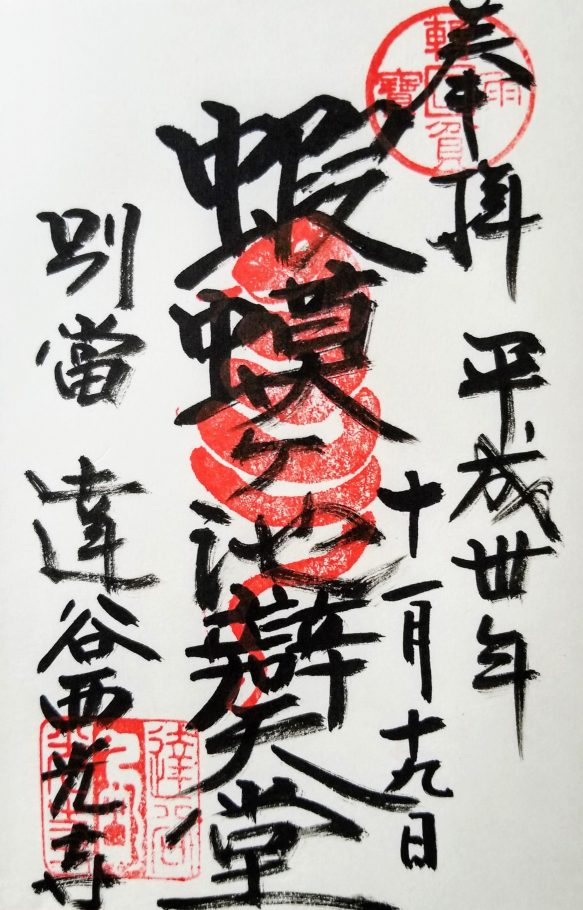 奉拝
平成卅年
十一月十九日
蝦蟆ヶ池辯天堂
別當 達谷西光寺